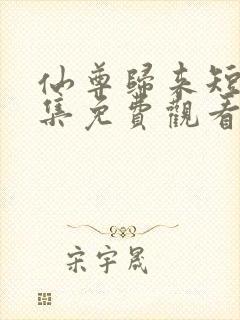 仙尊歸來短
集免費觀看
宋宇晟